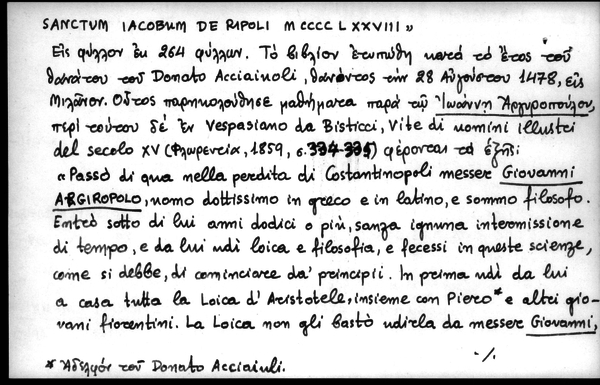 SANCTUM IACOBUM DE RIPOLI MCCCCLXXVIII»
Εἰς φύλλον ἐκ 264 φύλλων. Τὸ βιβλίον ἐτυπώθη κατὰ τὸ ἔτος τοῦ
θανάτου τοῦ Donato Acciaiuoli, θανόντος τὴν 28 Αὐγούστου 1478, εἰς
Μιλᾶνον. Οὗτος παρηκολούθησε μαθήματα παρὰ τῷ Ἰωάννῃ Ἀργυροπούλῳ,
περὶ τούτου δὲ ἐν Vespasiano da Bisticci, Vite di uomini illustri
del secolo XV (Φλωρεντία, 1859, σ. 334-335) φέρονται τὰ ἑξῆς:
«Passò di qua nella perdita di Costantinopoli messer Giovanni
ARGIROPOLO, uomo dottissimo in greco e in latino, e sommo filosofo.
Entrò sotto di lui anni dodici o più, sanza ignuna intromissione
di tempo, e da lui udì loica e filosofia, e fecessi in queste scienze,
come si debbe, di cominciare da' principii. In prima udì da lui
a casa tutta la Loica d'Aristotele, insieme con Piero* e altri gio-
vani fiorentini. La Loica non gli bastò udirla da messer Giovanni,
./.
* Ἀδελφὸν τοῦ Donato Acciaiuli.